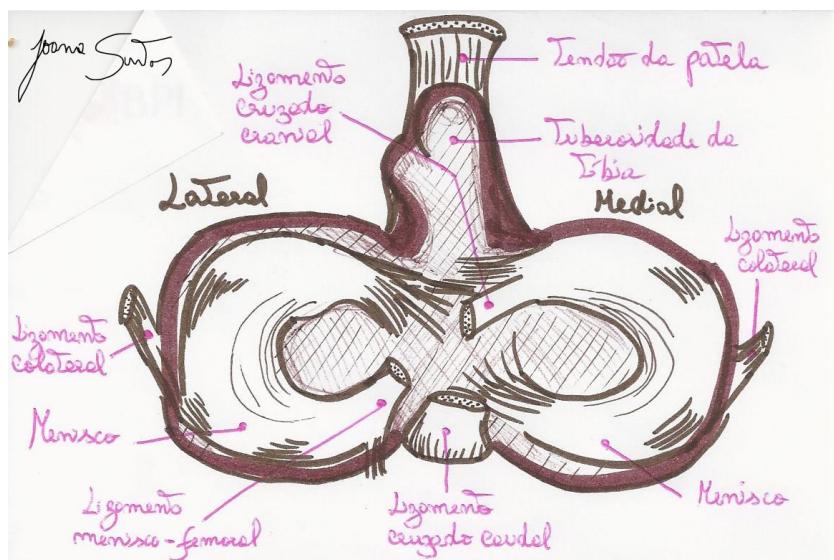 Joana Santos
Tendão da patela
Ligamento
cruzado
cranial
Tuberosidade da
Tíbia
Lateral
Medial
Ligamento
colateral
Ligamento
colateral
Menisco
Ligamento
menisco-femoral
Ligamento
cruzado caudal
Menisco